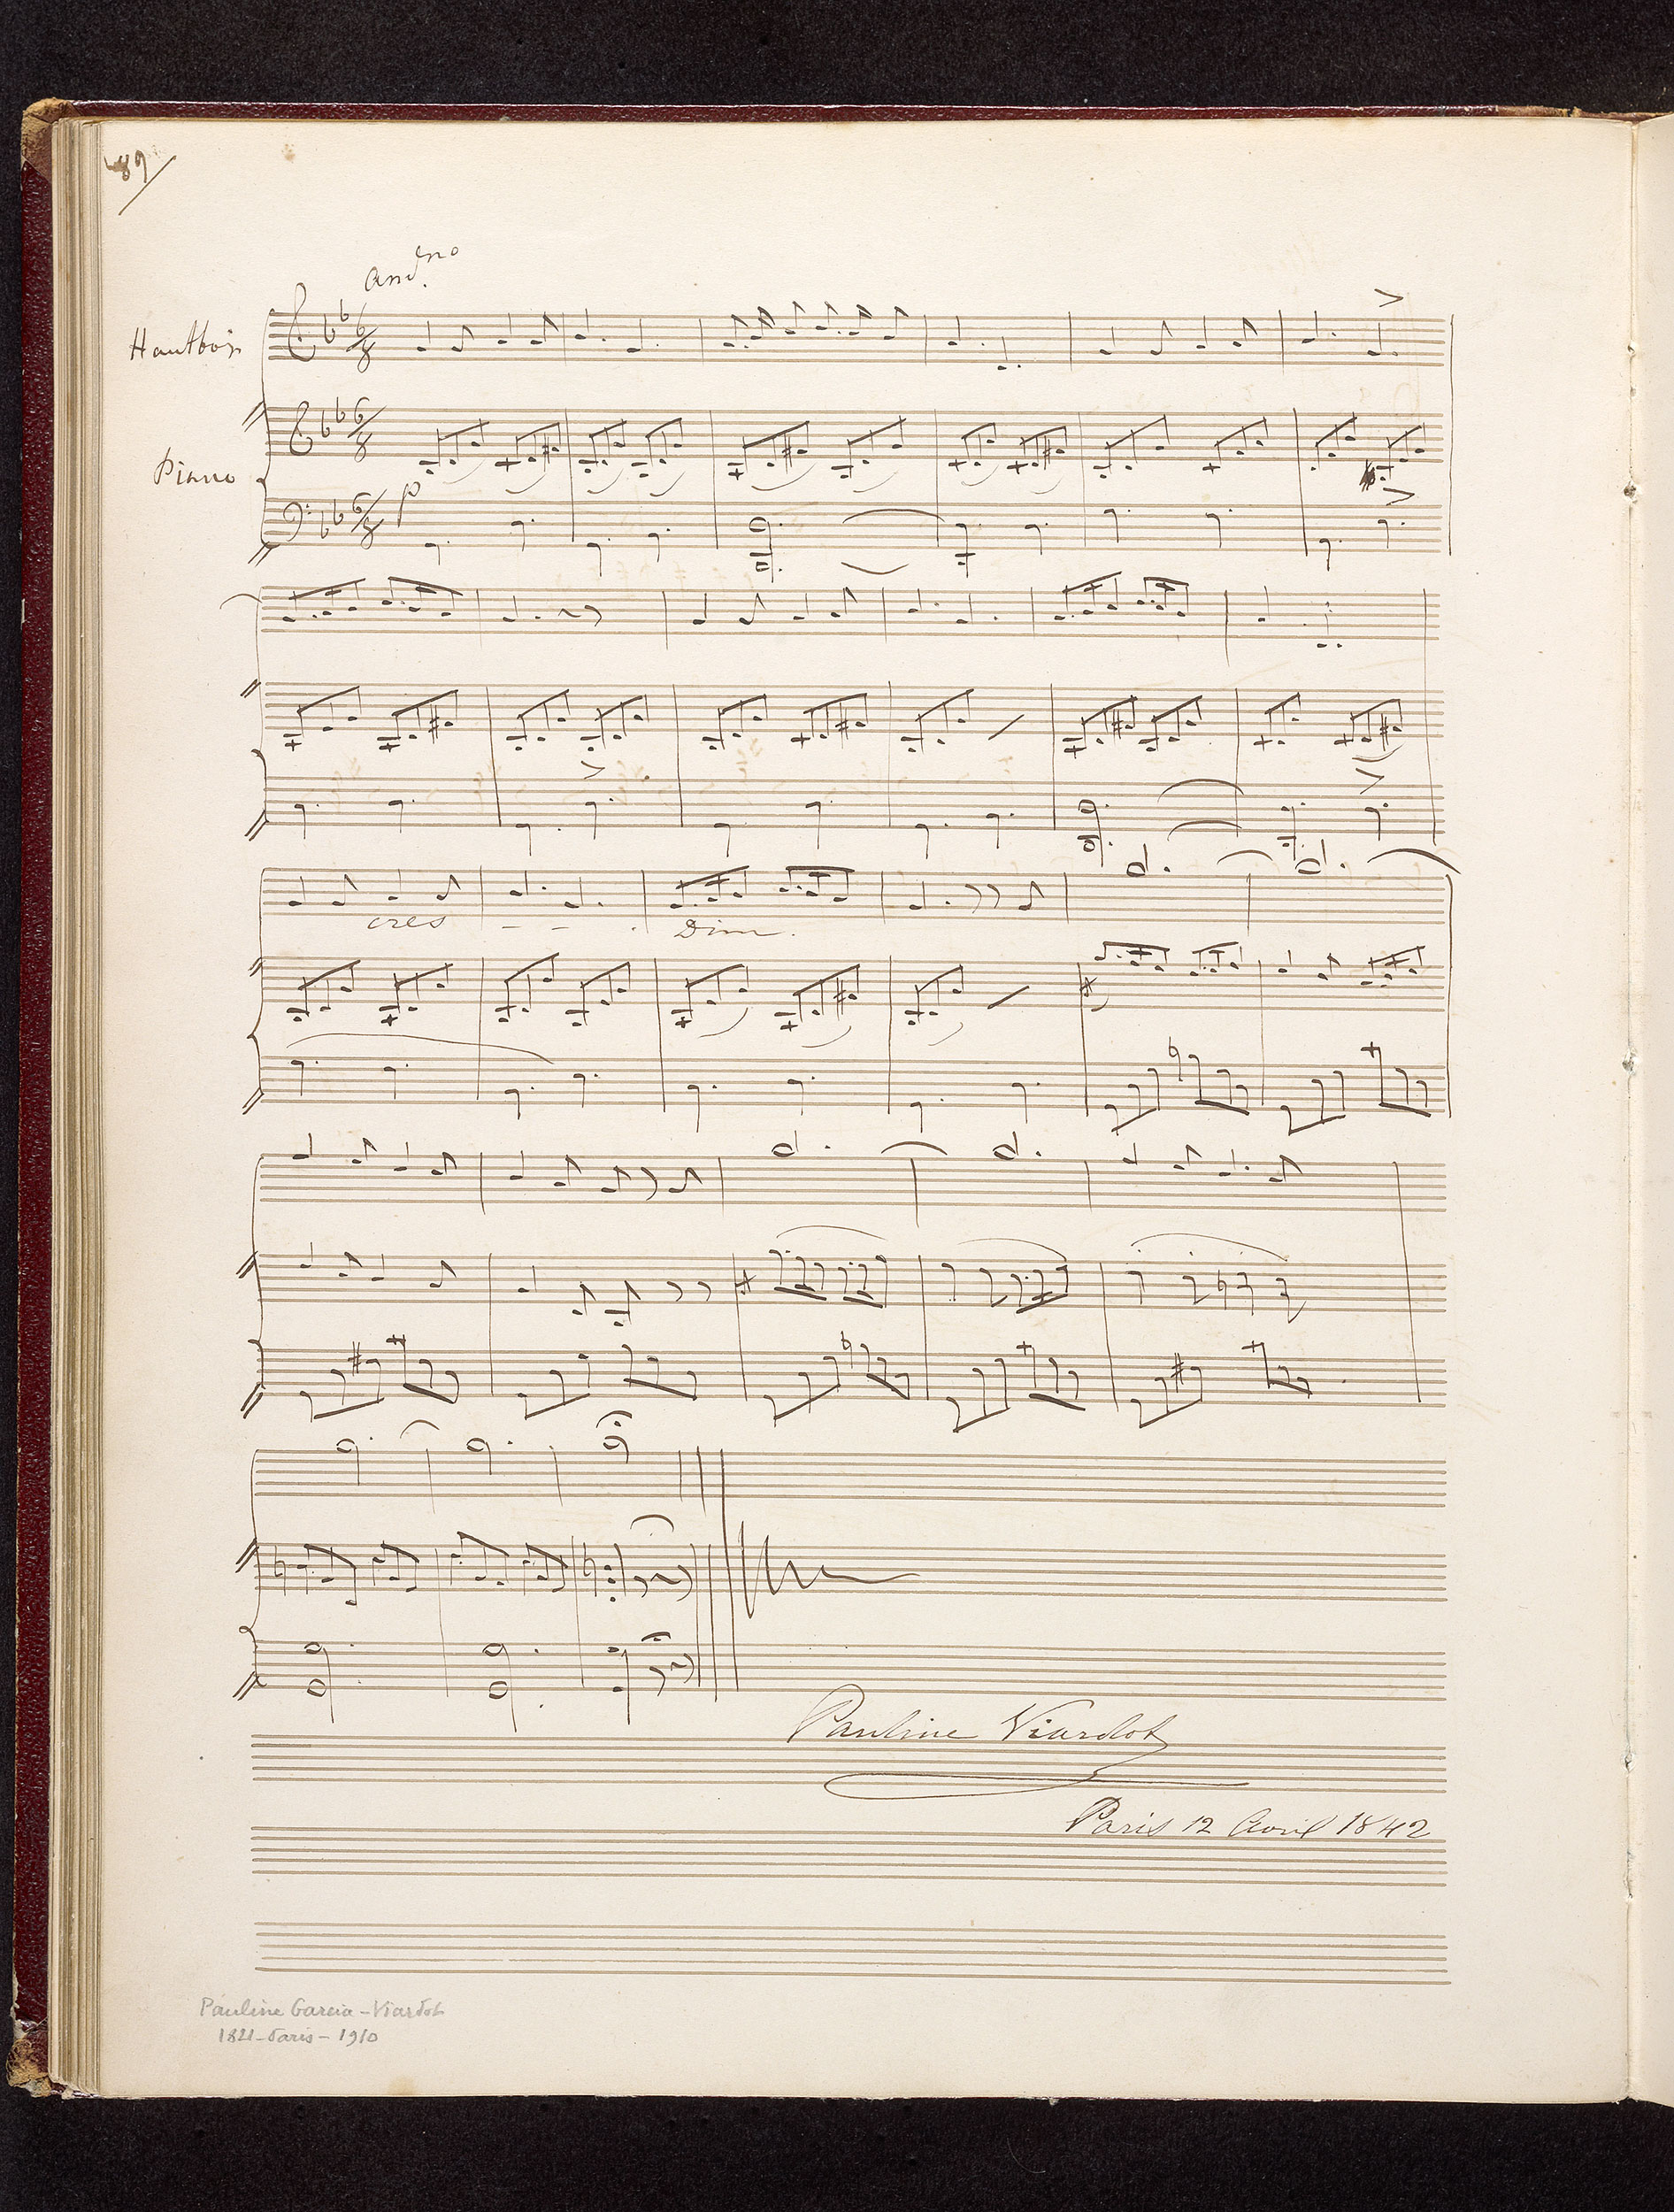 89
And.no
Hautbois
Piano
p
cres - - .
Dim.
Pauline Viardot
Paris 12 Avril 1842
Pauline Garcia-Viardot
1821-Paris-1910